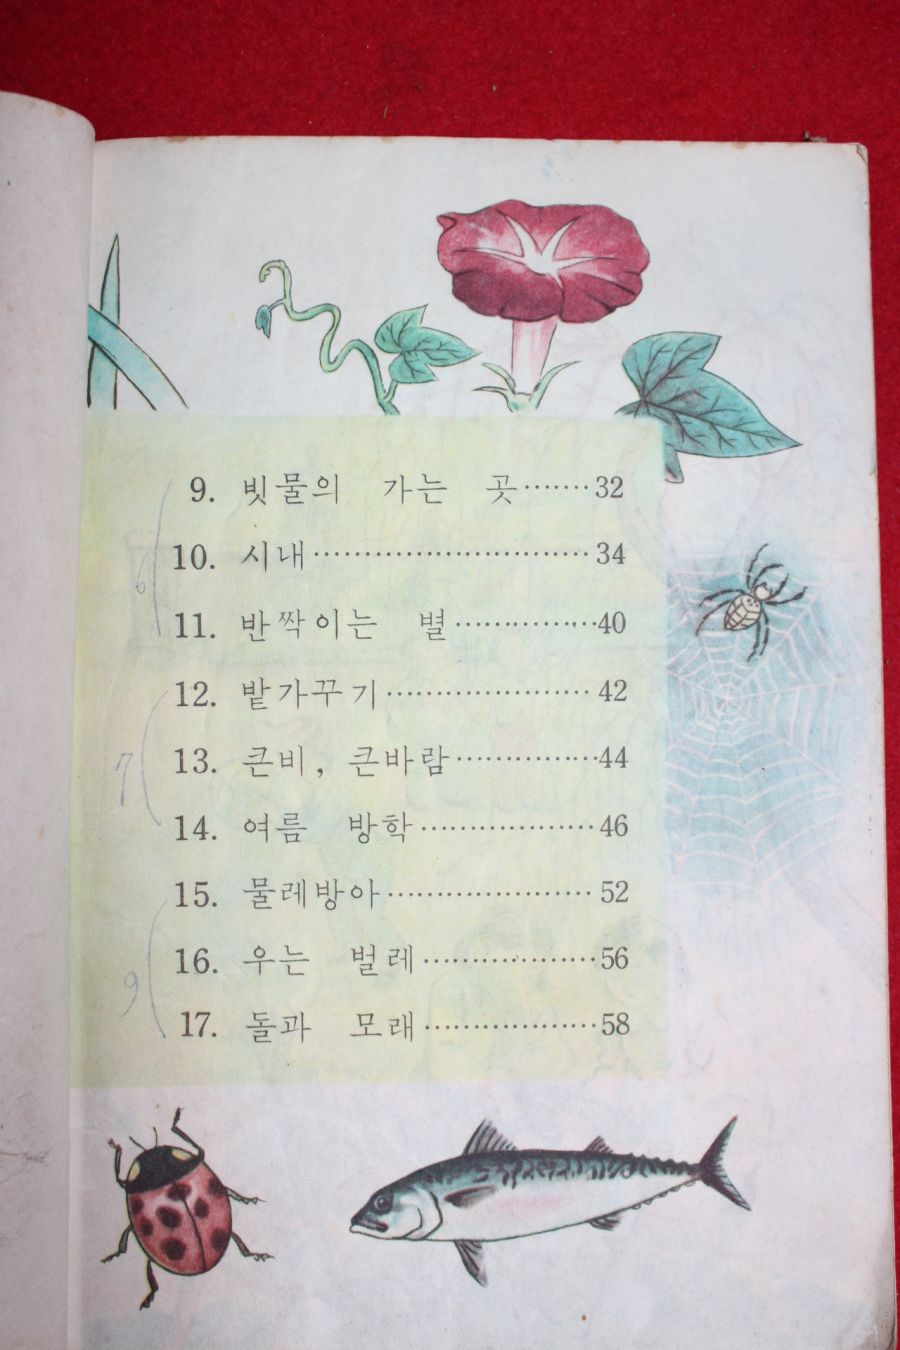 9. 빗물의 가는 곳·······32
10. 시내···························34
11. 반짝이는 별··············40
12. 밭가꾸기····················42
13. 큰비, 큰바람··············44
14. 여름 방학·················46
15. 물레방아····················52
16. 우는 벌레·················56
17. 돌과 모래·················58
6
7
9